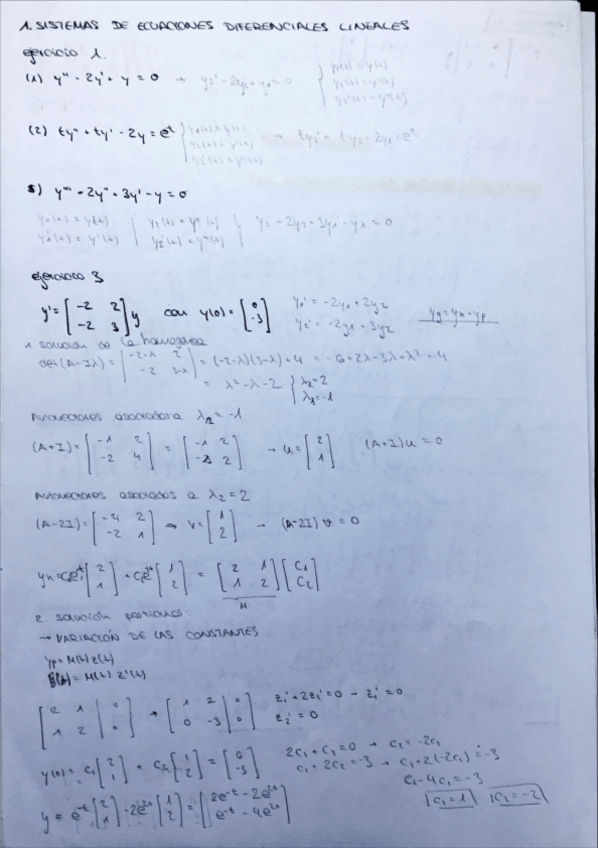 1. SISTEMAS DE ECUACIONES DIFERENCIALES LINEALES
ejercicio 1.
(1) y'' - 2y' + y = 0 → y2' - 2y2 + y1 = 0 { y1(t) = y(t)
y2(t) = y'(t)
y2'(t) = y''(t)
(2) ty'' + ty' - 2y = e^t { y1(t) = y(t)
y2(t) = y'(t)
y2'(t) = y''(t)
→ ty2' + ty2 - 2y1 = e^t
5) y''' - 2y'' + 3y' - y = 0
y1(t) = y(t)
y1'(t) = y'(t)
y2(t) = y''(t)
y2'(t) = y'''(t)
y2' - 2y2 + 3y1' - y1 = 0
ejercicio 3
y' = [-2 2; -2 3] y con y(0) = [0; -3] y1' = -2y1 + 2y2
y2' = -2y1 + 3y2
yg = yh + yp
1. solución de la homogénea
det(A-Iλ) = |-2-λ 2; -2 3-λ| = (-2-λ)(3-λ) + 4 = -6 + 2λ - 3λ + λ² + 4
= λ² - λ - 2 { λ2 = 2
λ1 = -1
Autovectores asociados a λ1 = -1
(A+I) = [-1 2; -2 4] = [-1 2; -2 2] → u = [2; 1] (A+I)u = 0
Autovectores asociados a λ2 = 2
(A-2I) = [-4 2; -2 1] ⇒ v = [1; 2] → (A-2I)v = 0
yh = c1e^-t [2; 1] + c2e^2t [1; 2] = [2 1; 1 2] [C1; C2]
M
2. solución particular:
→ VARIACIÓN DE LAS CONSTANTES
yp = M(t) z(t)
= M(t) z'(t)
[2 1 | 0; 1 2 | 0] → [1 2 | 0; 0 -3 | 0] z1' + 2z2' = 0 → z1' = 0
z2' = 0
y(0) = c1 [2; 1] + c2 [1; 2] = [0; -3] 2c1 + c2 = 0 → c2 = -2c1
c1 + 2c2 = -3 → c1 + 2(-2c1) = -3
c1 - 4c1 = -3
c1 = 1 c2 = -2
y = e^-t [2; 1] - 2e^2t [1; 2] = [2e^-t - 2e^2t; e^-t - 4e^2t]